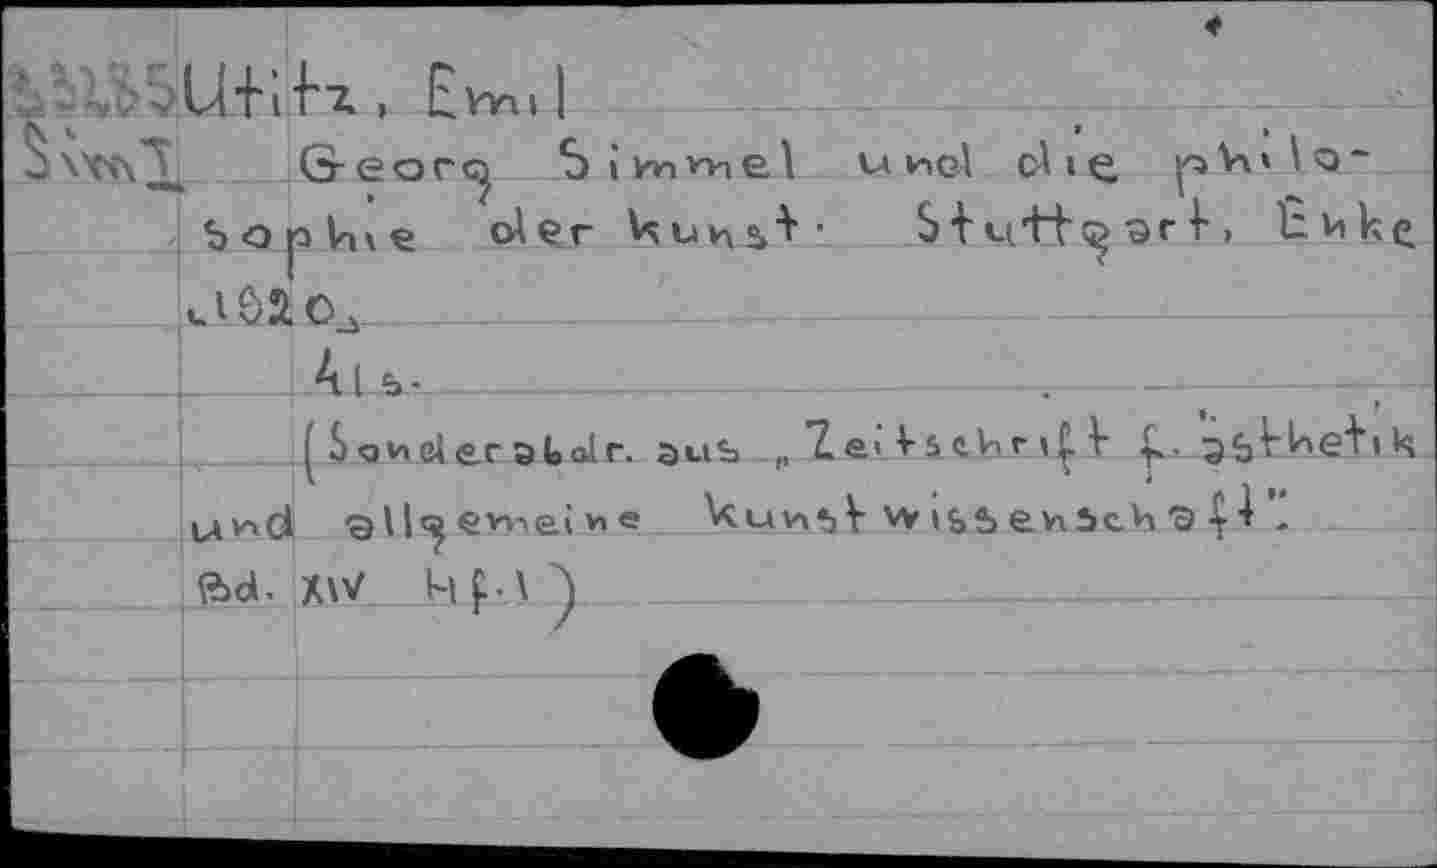 Utitz, Emil
Georg Simmel und die philo-
sophie der kunst. Stuttgart, Enke
[1920]
41 s.
(Sonderabdr. aus „Zeitschrift f. ästhetik
und allgemeine kunstwissenschaft".
Bd. XIV Hf. 1)